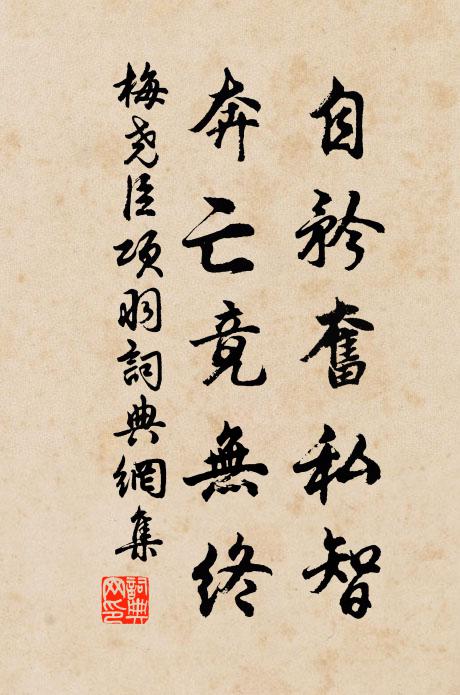 自矜奮私智
奔亡竟無終
梅堯臣項羽詞典網集
詞典网印